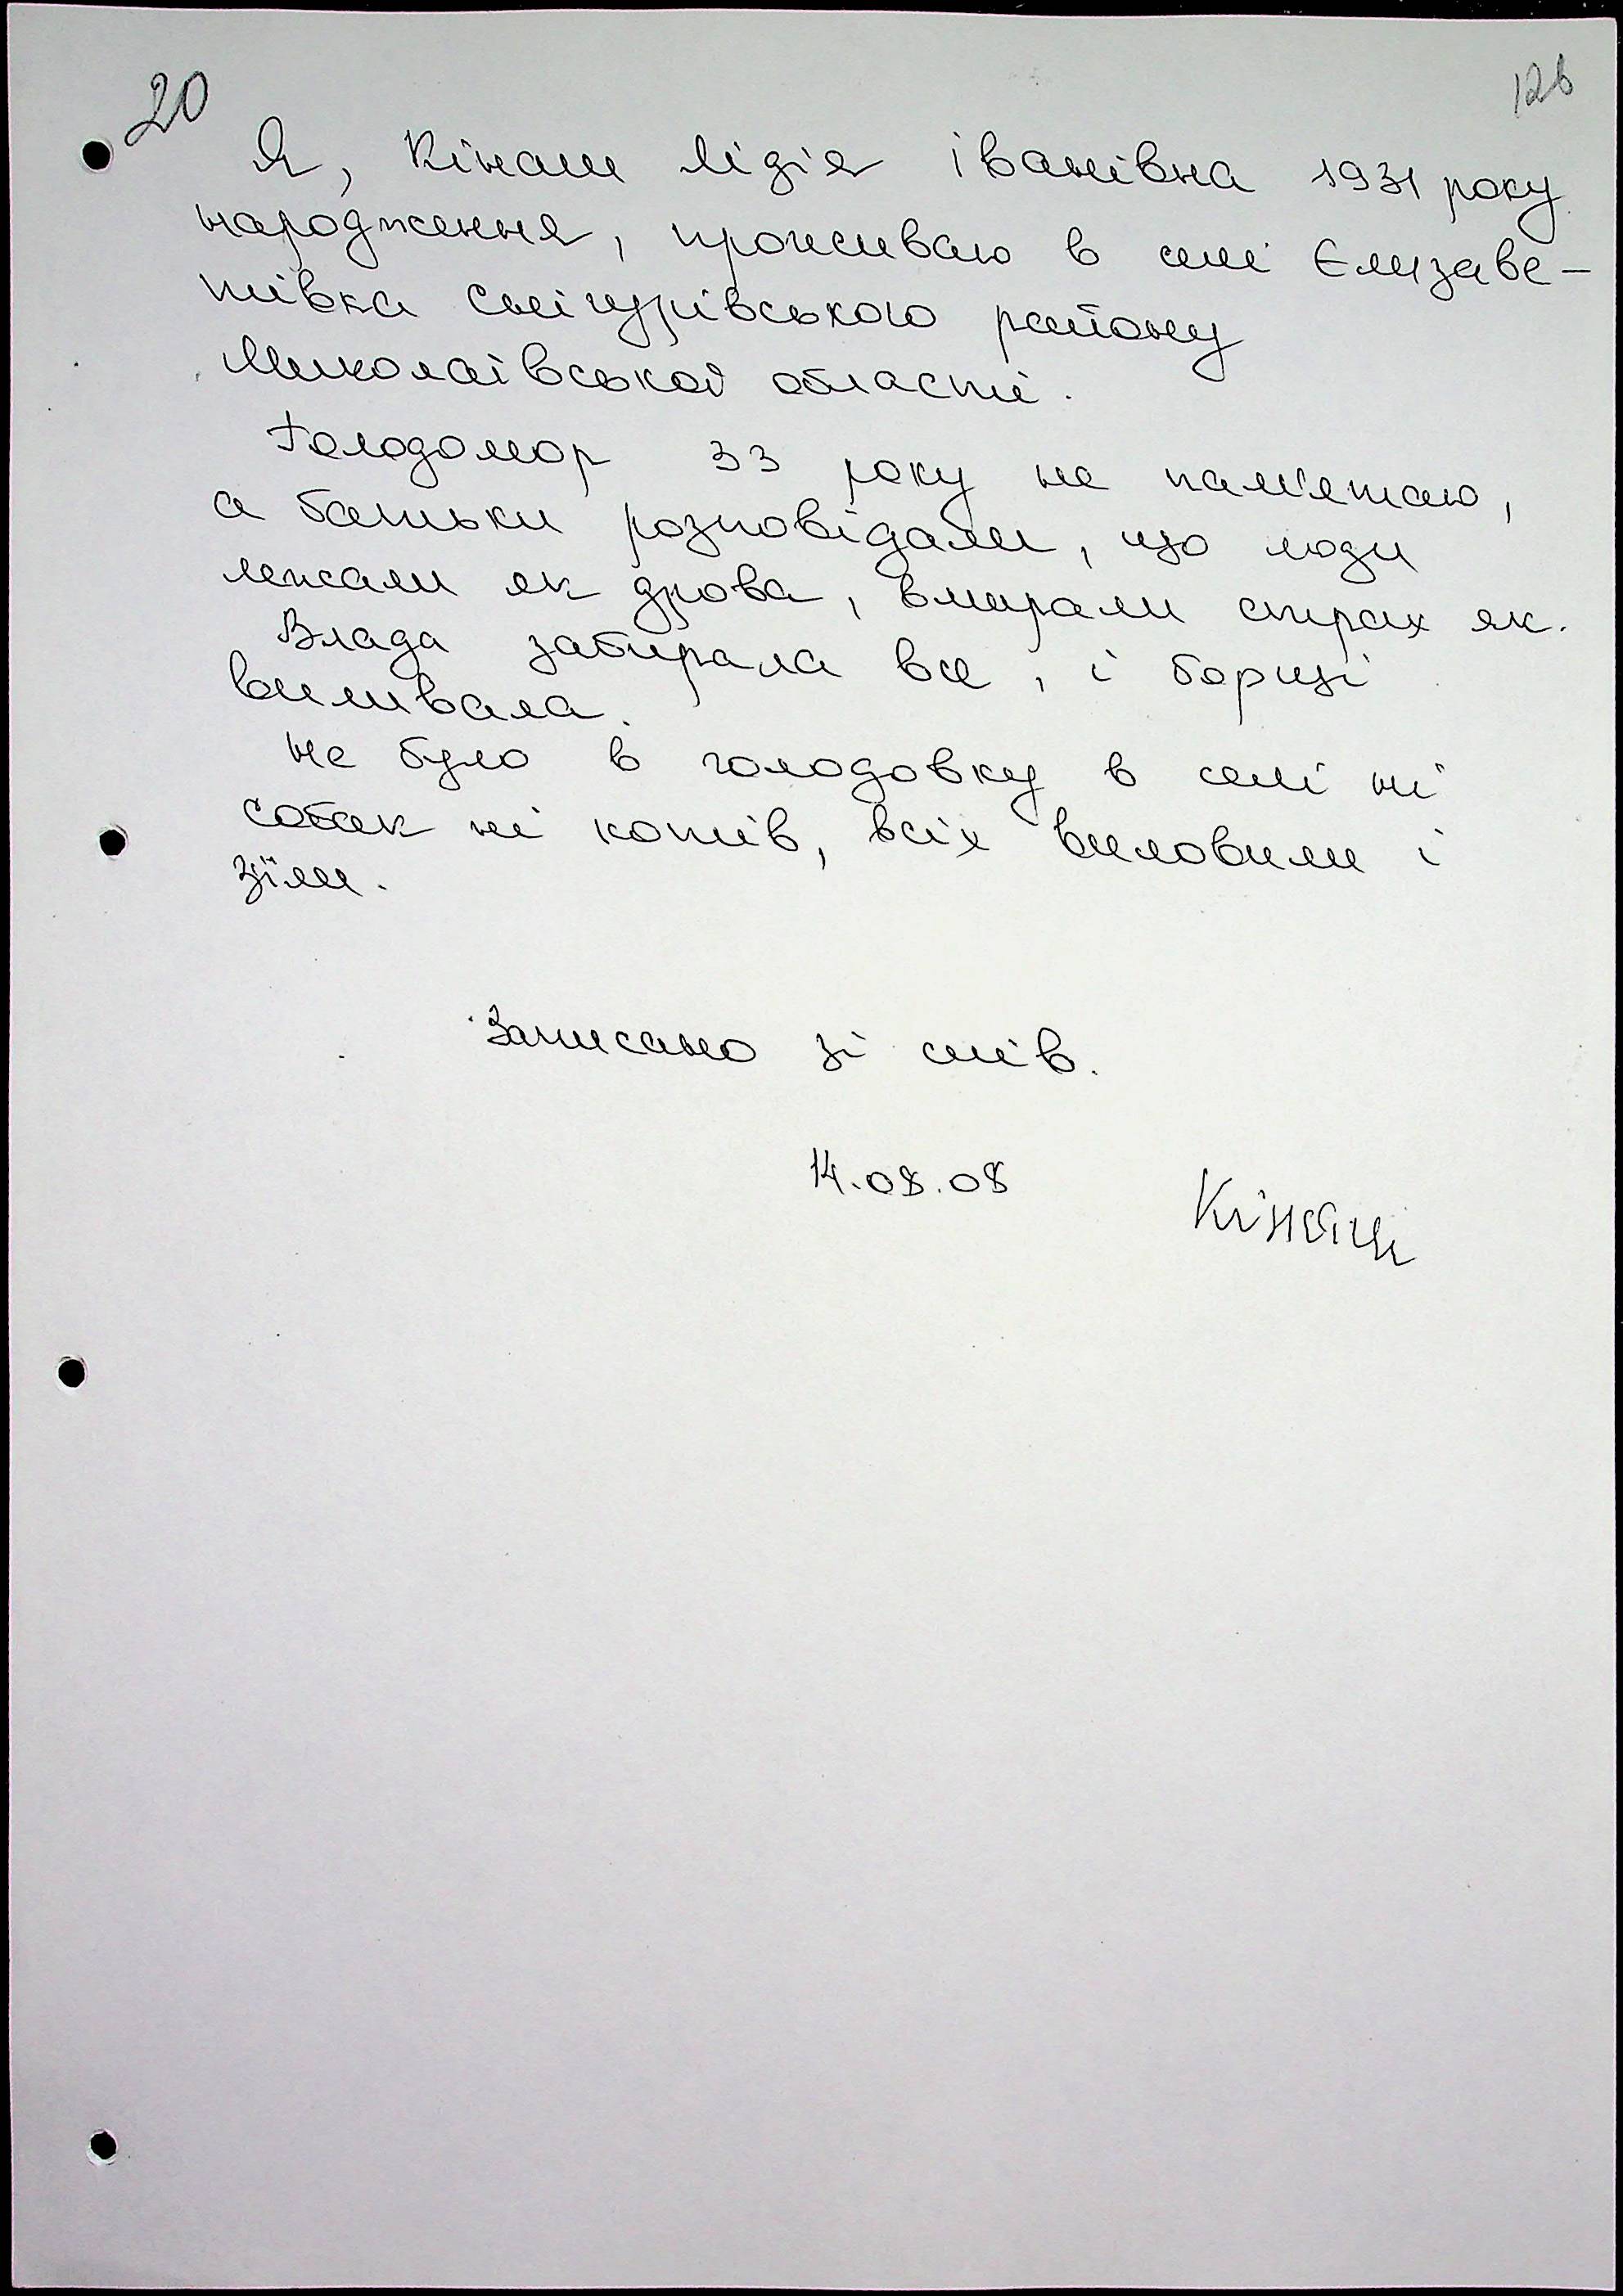 20
126
Я, Кінаш Лідія Іванівна 1931 року
народження, проживаю в селі Єлизаве-
тівка Снігурівського району
Миколаївської області.
Голодомор 33 року не пам'ятаю,
а батьки розповідали, що люди
лежали як дрова, вмирали страх як.
Влада забирала все, і борщі
виливала.
Не було в голодовку в селі ні
собак ні котів, всіх виловили і
зїли.
Записано зі слів.
14.08.08
Кінаш